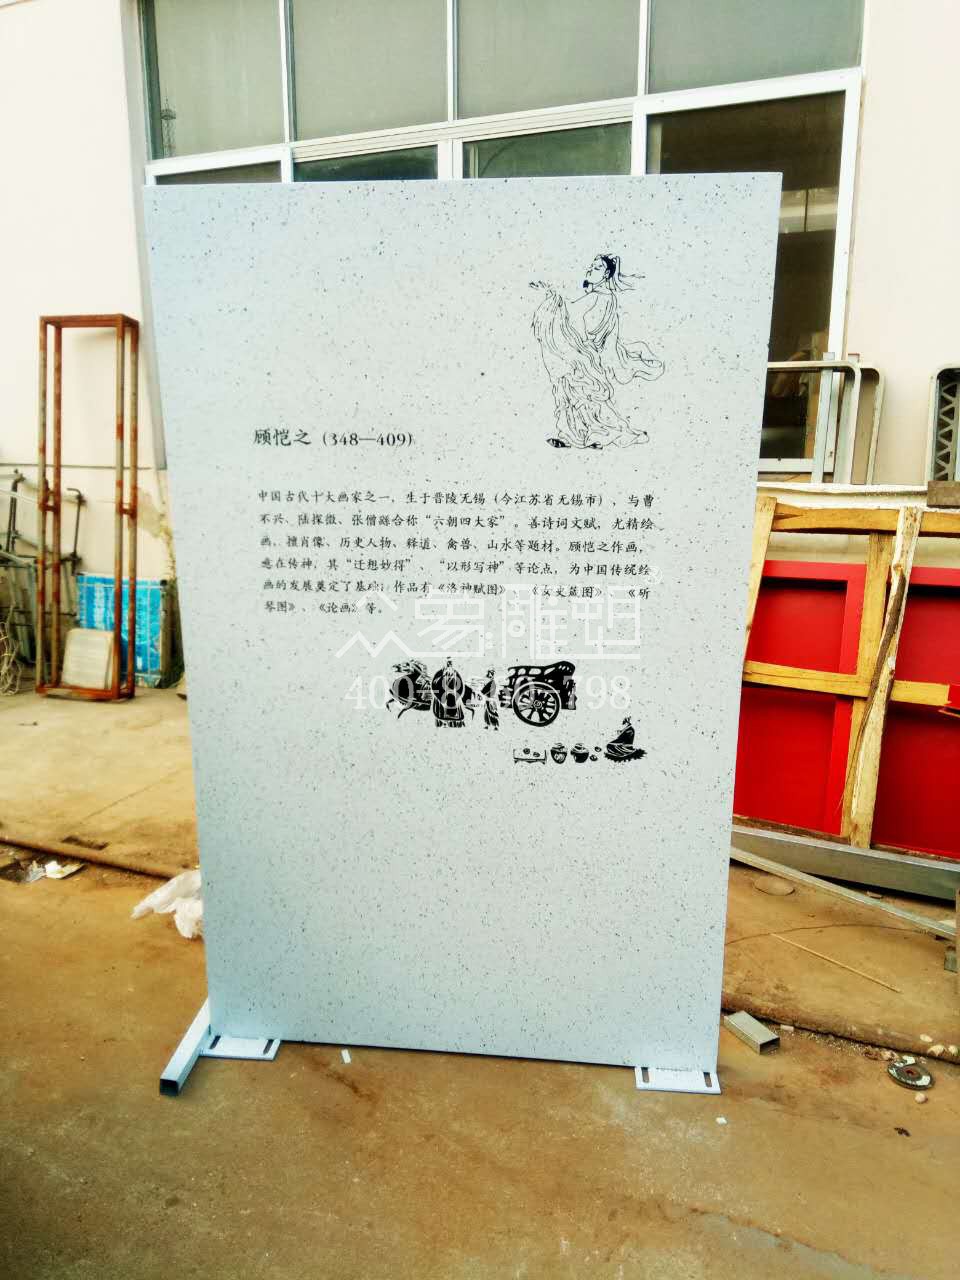 顾恺之（348—409）
中国古代十大画家之一，生于晋陵无锡（今江苏省无锡市），与曹
不兴、陆探微、张僧繇合称“六朝四大家”。善诗词文赋，尤精绘
画，擅肖像、历史人物、释道、禽兽、山水等题材。顾恺之作画，
意在传神，其“迁想妙得”、“以形写神”等论点，为中国传统绘
画的发展奠定了基础；作品有《洛神赋图》、《女史箴图》、《斫
琴图》、《论画》等。
雕塑